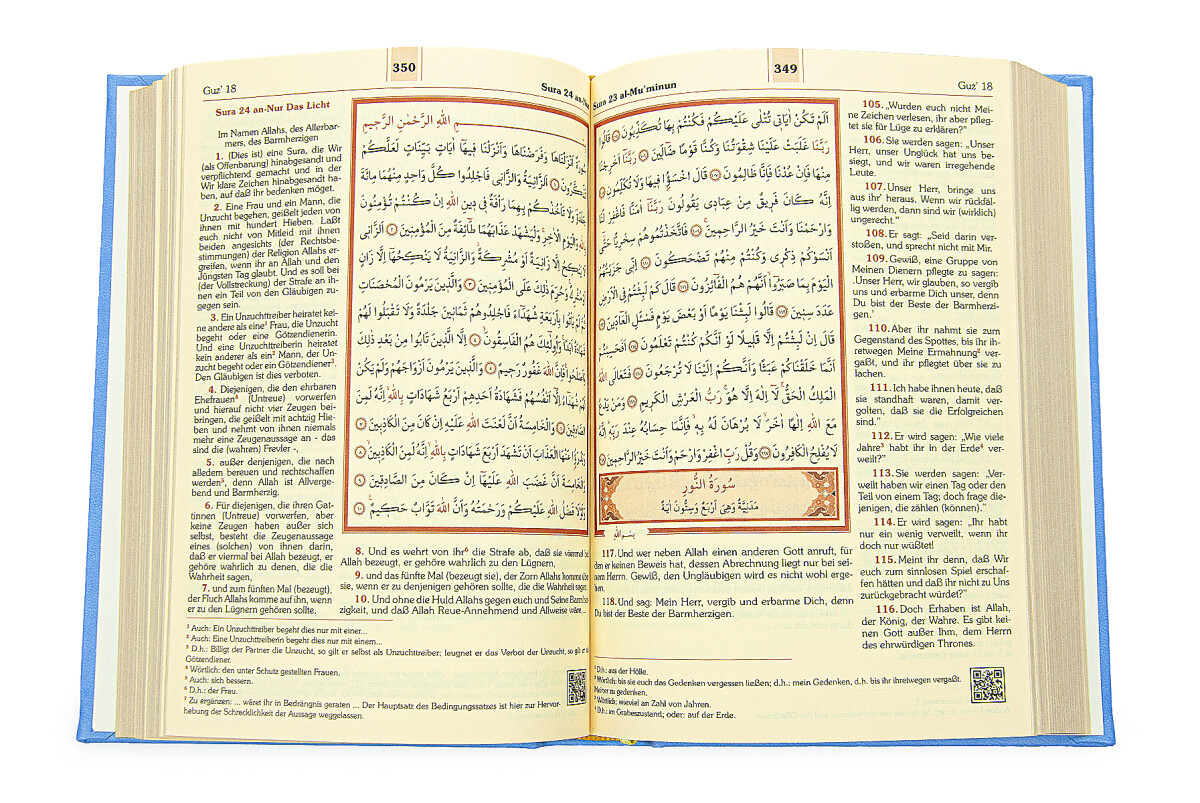 349
Sura 23 al-Mu'minun
Guz' 18
اَلَمْ تَكُنْ اٰيَاتٖي تُتْلٰى عَلَيْكُمْ فَكُنْتُمْ بِهَا تُكَذِّبُونَ ﴿١٠٥﴾ قَالُوا
رَبَّنَا غَلَبَتْ عَلَيْنَا شِقْوَتُنَا وَكُنَّا قَوْمًا ضَٓالّٖينَ ﴿١٠٦﴾ رَبَّنَٓا اَخْرِجْنَا
مِنْهَا فَاِنْ عُدْنَا فَاِنَّا ظَالِمُونَ ﴿١٠٧﴾ قَالَ اخْسَؤُ۫ا فٖيهَا وَلَا تُكَلِّمُونِ ﴿١٠٨﴾
اِنَّهُ كَانَ فَرٖيقٌ مِنْ عِبَادٖي يَقُولُونَ رَبَّنَٓا اٰمَنَّا فَاغْفِرْ لَنَا
وَارْحَمْنَا وَاَنْتَ خَيْرُ الرَّاحِمٖينَ ﴿١٠٩﴾ فَاتَّخَذْتُمُوهُمْ سِخْرِيًّا حَتّٰٓى
اَنْسَوْكُمْ ذِكْرٖي وَكُنْتُمْ مِنْهُمْ تَضْحَكُونَ ﴿١١٠﴾ اِنّٖي جَزَيْتُهُمُ
الْيَوْمَ بِمَا صَبَرُٓوا اَنَّهُمْ هُمُ الْفَٓائِزُونَ ﴿١١١﴾ قَالَ كَمْ لَبِثْتُمْ فِي الْاَرْضِ
عَدَدَ سِنٖينَ ﴿١١٢﴾ قَالُوا لَبِثْنَا يَوْمًا اَوْ بَعْضَ يَوْمٍ فَسْـَٔلِ الْعَٓادّٖينَ ﴿١١٣﴾
قَالَ اِنْ لَبِثْتُمْ اِلَّا قَلٖيلًا لَوْ اَنَّكُمْ كُنْتُمْ تَعْلَمُونَ ﴿١١٤﴾ اَفَحَسِبْتُمْ
اَنَّمَا خَلَقْنَاكُمْ عَبَثًا وَاَنَّكُمْ اِلَيْنَا لَا تُرْجَعُونَ ﴿١١٥﴾ فَتَعَالَى اللّٰهُ
الْمَلِكُ الْحَقُّ لَٓا اِلٰهَ اِلَّا هُوَ رَبُّ الْعَرْشِ الْكَرٖيمِ ﴿١١٦﴾ وَمَنْ يَدْعُ
مَعَ اللّٰهِ اِلٰهًا اٰخَرَ لَا بُرْهَانَ لَهُ بِهٖ فَاِنَّمَا حِسَابُهُ عِنْدَ رَبِّهٖ اِنَّهُ
لَا يُفْلِحُ الْكَافِرُونَ ﴿١١٧﴾ وَقُلْ رَبِّ اغْفِرْ وَارْحَمْ وَاَنْتَ خَيْرُ الرَّاحِمٖينَ ﴿١١٨﴾
سُورَةُ النُّورِ
مَدَنِيَّةٌ وَهِيَ اَرْبَعٌ وَسِتُّونَ اٰيَةً
بِسْمِ اللّٰهِ
105. „Wurden euch nicht Mei-
ne Zeichen verlesen, ihr aber pfleg-
tet sie für Lüge zu erklären?“
106. Sie werden sagen: „Unser
Herr, unser Unglück hat uns be-
siegt, und wir waren irregehende
Leute.
107. Unser Herr, bringe uns
aus ihr¹ heraus. Wenn wir rückfäl-
lig werden, dann sind wir (wirklich)
ungerecht.“
108. Er sagt: „Seid darin ver-
stoßen, und sprecht nicht mit Mir.
109. Gewiß, eine Gruppe von
Meinen Dienern pflegte zu sagen:
‚Unser Herr, wir glauben, so vergib
uns und erbarme Dich unser, denn
Du bist der Beste der Barmherzi-
gen.‘
110. Aber ihr nahmt sie zum
Gegenstand des Spottes, bis ihr ih-
retwegen Meine Ermahnung² ver-
gaßt, und ihr pflegtet über sie zu
lachen.
111. Ich habe ihnen heute, daß
sie standhaft waren, damit ver-
golten, daß sie die Erfolgreichen
sind.“
112. Er wird sagen: „Wie viele
Jahre³ habt ihr in der Erde⁴ ver-
weilt?“
113. Sie werden sagen: „Ver-
weilt haben wir einen Tag oder den
Teil von einem Tag; doch frage die-
jenigen, die zählen (können).“
114. Er wird sagen: „Ihr habt
nur ein wenig verweilt, wenn ihr
doch nur wüßtet!
115. Meint ihr denn, daß Wir
euch zum sinnlosen Spiel erschaf-
fen hätten und daß ihr nicht zu Uns
zurückgebracht würdet?“
116. Doch Erhaben ist Allah,
der König, der Wahre. Es gibt kei-
nen Gott außer Ihm, dem Herrn
des ehrwürdigen Thrones.
117. Und wer neben Allah einen anderen Gott anruft, für
den er keinen Beweis hat, dessen Abrechnung liegt nur bei sei-
nem Herrn. Gewiß, den Ungläubigen wird es nicht wohl erge-
hen.
118. Und sag: Mein Herr, vergib und erbarme Dich, denn
Du bist der Beste der Barmherzigen.
¹ D.h.: aus der Hölle.
² Wörtlich: bis sie euch das Gedenken vergessen ließen; d.h.: mein Gedenken, d.h. bis ihr ihretwegen vergaßt,
Meiner zu gedenken.
³ Wörtlich: wieviel an Zahl von Jahren.
⁴ D.h.: im Grabeszustand; oder: auf der Erde.
350
Guz' 18
Sura 24 an-Nur
Sura 24 an-Nur Das Licht
Im Namen Allahs, des Allerbar-
mers, des Barmherzigen
1. (Dies ist) eine Sura, die Wir
(als Offenbarung) hinabgesandt und
verpflichtend gemacht und in der
Wir klare Zeichen hinabgesandt ha-
ben, auf daß ihr bedenken möget.
2. Eine Frau und ein Mann, die
Unzucht begehen, geißelt jeden von
ihnen mit hundert Hieben. Laßt
euch nicht von Mitleid mit ihnen
beiden angesichts (der Rechtsbe-
stimmungen) der Religion Allahs er-
greifen, wenn ihr an Allah und den
Jüngsten Tag glaubt. Und es soll bei
(der Vollstreckung) der Strafe an ih-
nen ein Teil von den Gläubigen zu-
gegen sein.
3. Ein Unzuchttreiber heiratet kei-
ne andere als eine¹ Frau, die Unzucht
begeht oder eine Götzendienerin.
Und eine Unzuchttreiberin heiratet
kein anderer als ein² Mann, der Un-
zucht begeht oder ein Götzendiener³.
Den Gläubigen ist dies verboten.
4. Diejenigen, die den ehrbaren
Ehefrauen⁴ (Untreue) vorwerfen
und hierauf nicht vier Zeugen bei-
bringen, die geißelt mit achtzig Hie-
ben und nehmt von ihnen niemals
mehr eine Zeugenaussage an - das
sind die (wahren) Frevler -,
5. außer denjenigen, die nach
alledem bereuen und rechtschaffen
werden⁵, denn Allah ist Allverge-
bend und Barmherzig.
6. Für diejenigen, die ihren Gat-
tinnen (Untreue) vorwerfen, aber
keine Zeugen haben außer sich
selbst, besteht die Zeugenaussage
eines (solchen) von ihnen darin,
daß er viermal bei Allah bezeugt, er
gehöre wahrlich zu denen, die die
Wahrheit sagen,
7. und zum fünften Mal (bezeugt),
der Fluch Allahs komme auf ihn, wenn
er zu den Lügnern gehören sollte.
اللّٰهِ الرَّحْمٰنِ الرَّحٖيمِ
سُورَةٌ اَنْزَلْنَاهَا وَفَرَضْنَاهَا وَاَنْزَلْنَا فٖيهَٓا اٰيَاتٍ بَيِّنَاتٍ لَعَلَّكُمْ
تَذَكَّرُونَ ﴿١﴾ اَلزَّانِيَةُ وَالزَّانٖي فَاجْلِدُوا كُلَّ وَاحِدٍ مِنْهُمَا مِائَةَ
جَلْدَةٍ وَلَا تَأْخُذْكُمْ بِهِمَا رَأْفَةٌ فٖي دٖينِ اللّٰهِ اِنْ كُنْتُمْ تُؤْمِنُونَ
بِاللّٰهِ وَالْيَوْمِ الْاٰخِرِ وَلْيَشْهَدْ عَذَابَهُمَا طَٓائِفَةٌ مِنَ الْمُؤْمِنٖينَ ﴿٢﴾ اَلزَّانٖي
لَا يَنْكِحُ اِلَّا زَانِيَةً اَوْ مُشْرِكَةً وَالزَّانِيَةُ لَا يَنْكِحُهَٓا اِلَّا زَانٍ
اَوْ مُشْرِكٌ وَحُرِّمَ ذٰلِكَ عَلَى الْمُؤْمِنٖينَ ﴿٣﴾ وَالَّذٖينَ يَرْمُونَ الْمُحْصَنَاتِ
ثُمَّ لَمْ يَأْتُوا بِاَرْبَعَةِ شُهَدَٓاءَ فَاجْلِدُوهُمْ ثَمَانٖينَ جَلْدَةً وَلَا تَقْبَلُوا لَهُمْ
شَهَادَةً اَبَدًا وَاُولٰٓئِكَ هُمُ الْفَاسِقُونَ ﴿٤﴾ اِلَّا الَّذٖينَ تَابُوا مِنْ بَعْدِ ذٰلِكَ
وَاَصْلَحُوا فَاِنَّ اللّٰهَ غَفُورٌ رَحٖيمٌ ﴿٥﴾ وَالَّذٖينَ يَرْمُونَ اَزْوَاجَهُمْ وَلَمْ يَكُنْ
لَهُمْ شُهَدَٓاءُ اِلَّٓا اَنْفُسُهُمْ فَشَهَادَةُ اَحَدِهِمْ اَرْبَعُ شَهَادَاتٍ بِاللّٰهِ اِنَّهُ لَمِنَ
الصَّادِقٖينَ ﴿٦﴾ وَالْخَامِسَةُ اَنَّ لَعْنَتَ اللّٰهِ عَلَيْهِ اِنْ كَانَ مِنَ الْكَاذِبٖينَ ﴿٧﴾
وَيَدْرَؤُ۬ا عَنْهَا الْعَذَابَ اَنْ تَشْهَدَ اَرْبَعَ شَهَادَاتٍ بِاللّٰهِ اِنَّهُ لَمِنَ الْكَاذِبٖينَ ﴿٨﴾
وَالْخَامِسَةَ اَنَّ غَضَبَ اللّٰهِ عَلَيْهَٓا اِنْ كَانَ مِنَ الصَّادِقٖينَ ﴿٩﴾
وَلَوْلَا فَضْلُ اللّٰهِ عَلَيْكُمْ وَرَحْمَتُهُ وَاَنَّ اللّٰهَ تَوَّابٌ حَكٖيمٌ ﴿١٠﴾
8. Und es wehrt von ihr⁶ die Strafe ab, daß sie viermal bei
Allah bezeugt, er gehöre wahrlich zu den Lügnern,
9. und das fünfte Mal (bezeugt sie), der Zorn Allahs komme über
sie, wenn er zu denjenigen gehören sollte, die die Wahrheit sagen.
10. Und ohne die Huld Allahs gegen euch und Seine Barmher-
zigkeit, und daß Allah Reue-Annehmend und Allweise wäre...⁷
¹ Auch: Ein Unzuchttreiber begeht dies nur mit einer...
² Auch: Eine Unzuchttreiberin begeht dies nur mit einem...
³ D.h.: Billigt der Partner die Unzucht, so gilt er selbst als Unzuchttreiber; leugnet er das Verbot der Unzucht, so gilt er als
Götzendiener.
⁴ Wörtlich: den unter Schutz gestellten Frauen.
⁵ Auch: sich bessern.
⁶ D.h.: der Frau.
⁷ Zu ergänzen: ... wäret ihr in Bedrängnis geraten ... Der Hauptsatz des Bedingungssatzes ist hier zur Hervor-
hebung der Schrecklichkeit der Aussage weggelassen.